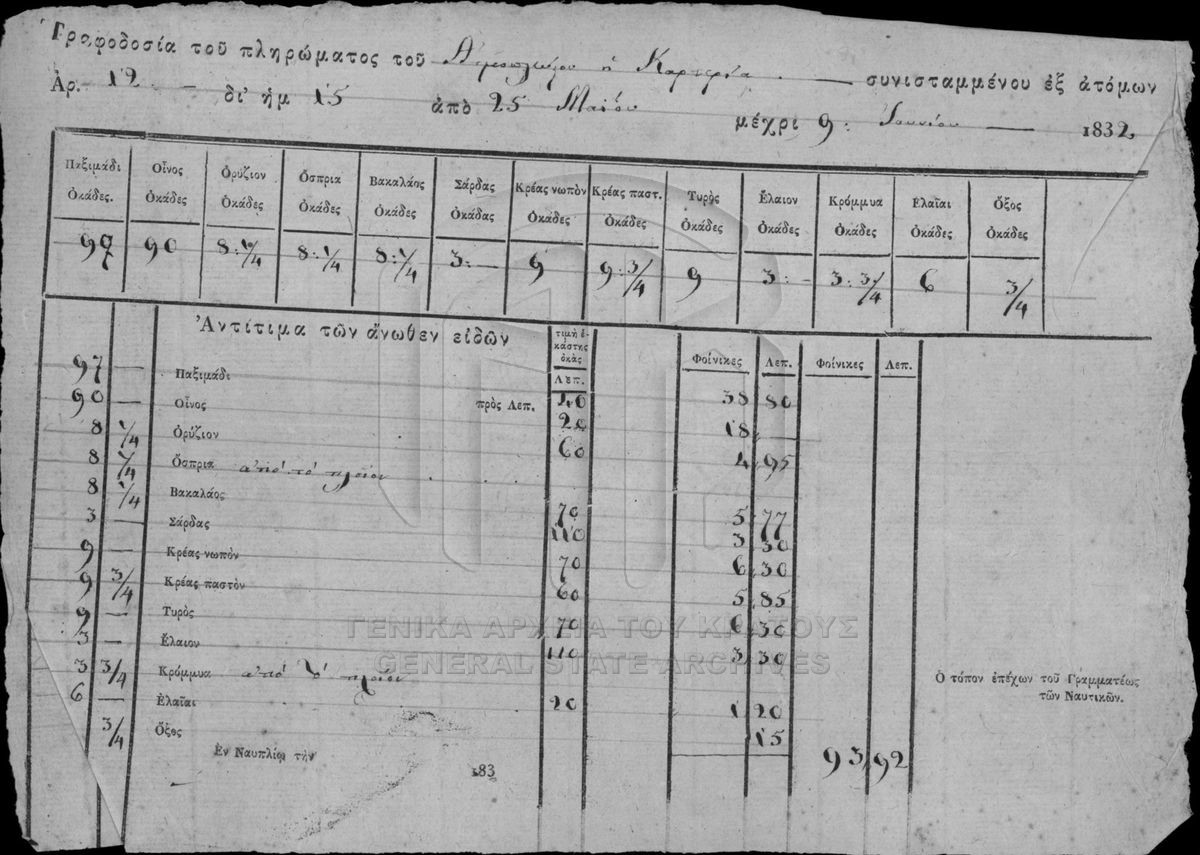 Τραφοδοσία τοῦ πληρώματος τοῦ Ἀτμοπλοίου ἡ Καρτερία. — συνισταμμένου ἐξ ἀτόμων
Ἀρ. 12. — δι' ἡμ 15 ἀπὸ 25 Μαΐου μέχρι 9: Ἰουνίου — 1832
Παξιμάδι Οἶνος Ὀρύζιον Ὄσπρια Βακαλάος Σάρδας Κρέας νωπὸν Κρέας παστ. Τυρὸς Ἔλαιον Κρόμμυα Ἐλαῖαι Ὄξος
Ὀκάδες. Ὀκάδες Ὀκάδες Ὀκάδες Ὀκάδες Ὀκάδας Ὀκάδες Ὀκάδες Ὀκάδες Ὀκάδες Ὀκάδες Ὀκάδες Ὀκάδες
97 90 8:1/4 8:1/4 8:1/4 3:— 9 9:3/4 9 3:— 3:3/4 6 3/4
Ἀντίτιμα τῶν ἄνωθεν εἰδῶν
τιμὴ ἑ-
κάστης
ὀκᾶς
Λεπ.
Φοίνικες Λεπ. Φοίνικες Λεπ.
97 — Παξιμάδι 40 38 80
90 — Οἶνος πρὸς Λεπ. 20 18 —
8 1/4 Ὀρύζιον 60 4 95
8 1/4 Ὄσπρια ἀπὸ τὸ πλοῖον . . .
8 1/4 Βακαλάος 70 5 77
3 — Σάρδας 110 3 30
9 — Κρέας νωπὸν 70 6 30
9 3/4 Κρέας παστὸν 60 5 85
9 — Τυρὸς 70 6 30
3 — Ἔλαιον 110 3 30
3 3/4 Κρόμμυα ἀπὸ τὸ πλοῖον
6 — Ἐλαῖαι 20 1 20
3/4 Ὄξος 15
93,92
Ἐν Ναυπλίῳ τὴν 183
Ὁ τόπον ἐπέχων τοῦ Γραμματέως
τῶν Ναυτικῶν.
ΓΕΝΙΚΑ ΑΡΧΕΙΑ ΤΟΥ ΚΡΑΤΟΥΣ
GENERAL STATE ARCHIVES